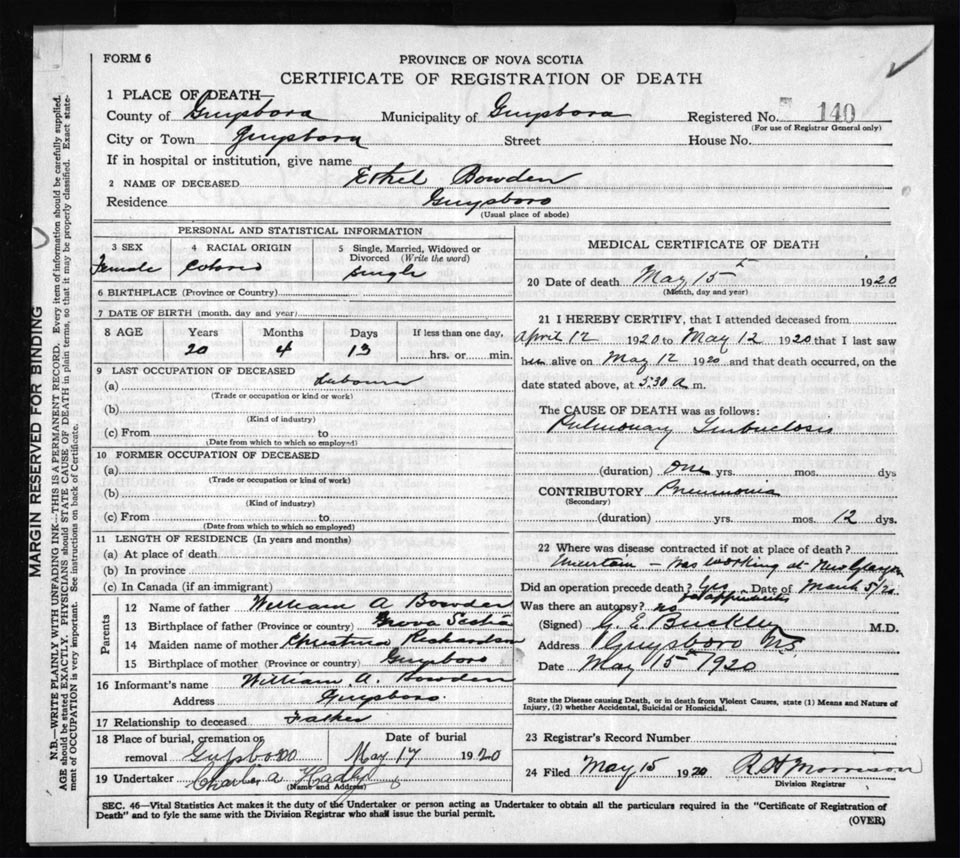 FORM 6
PROVINCE OF NOVA SCOTIA
CERTIFICATE OF REGISTRATION OF DEATH
1 PLACE OF DEATH—
County of Guysboro Municipality of Guysboro Registered No. 140
(For use of Registrar General only)
City or Town Guysboro Street House No.
If in hospital or institution, give name
2 NAME OF DECEASED Ethel Bowden
Residence Guysboro
(Usual place of abode)
PERSONAL AND STATISTICAL INFORMATION
3 SEX 4 RACIAL ORIGIN 5 Single, Married, Widowed or
Divorced (Write the word)
Female Colored single
6 BIRTHPLACE (Province or Country)
7 DATE OF BIRTH (month, day and year)
8 AGE Years Months Days If less than one day,
20 4 13 hrs. or min.
9 LAST OCCUPATION OF DECEASED
(a) Labourer
(Trade or occupation or kind or work)
(b)
(Kind of industry)
(c) From to
(Date from which to which so employed)
10 FORMER OCCUPATION OF DECEASED
(a)
(Trade or occupation or kind of work)
(b)
(Kind of industry)
(c) From to
(Date from which to which so employed)
11 LENGTH OF RESIDENCE (In years and months)
(a) At place of death
(b) In province
(c) In Canada (if an immigrant)
Parents
12 Name of father William A Bowden
13 Birthplace of father (Province or country) Nova Scotia
14 Maiden name of mother Christina Richardson
15 Birthplace of mother (Province or country) Guysboro
16 Informant's name William A. Bowden
Address Guysboro.
17 Relationship to deceased Father
18 Place of burial, cremation or Date of burial
removal Guysboro May 17 1920
19 Undertaker Charlie A Hadley
(Name and Address)
MEDICAL CERTIFICATE OF DEATH
20 Date of death May 15th 1920
(Month, day and year)
21 I HEREBY CERTIFY, that I attended deceased from
April 12 1920 to May 12 1920 that I last saw
her alive on May 12 1920 and that death occurred, on the
date stated above, at 5:30 a m.
The CAUSE OF DEATH was as follows:
Pulmonary Tuberculosis
(duration) one yrs. mos. dys
CONTRIBUTORY Pneumonia
(Secondary)
(duration) yrs. mos. 12 dys.
22 Where was disease contracted if not at place of death?
Uncertain — was working at New Glasgow
Did an operation precede death? Yes Date of March 5/20
for appendicitis
Was there an autopsy? no
(Signed) G. E. Buckley M.D.
Address Guysboro NS.
Date May 15th 1920
State the Disease causing Death, or in death from Violent Causes, state (1) Means and Nature of
Injury, (2) whether Accidental, Suicidal or Homicidal.
23 Registrar's Record Number
24 Filed May 15 1920 R H Morrison
Division Registrar
SEC. 46—Vital Statistics Act makes it the duty of the Undertaker or person acting as Undertaker to obtain all the particulars required in the "Certificate of Registration of
Death" and to fyle the same with the Division Registrar who shall issue the burial permit.
(OVER)
MARGIN RESERVED FOR BINDING
N.B.—WRITE PLAINLY WITH UNFADING INK—THIS IS A PERMANENT RECORD. Every item of information should be carefully supplied.
AGE should be stated EXACTLY. PHYSICIANS should STATE CAUSE OF DEATH in plain terms, so that it may be properly classified. Exact state-
ment of OCCUPATION is very important. See instructions on back of Certificate.